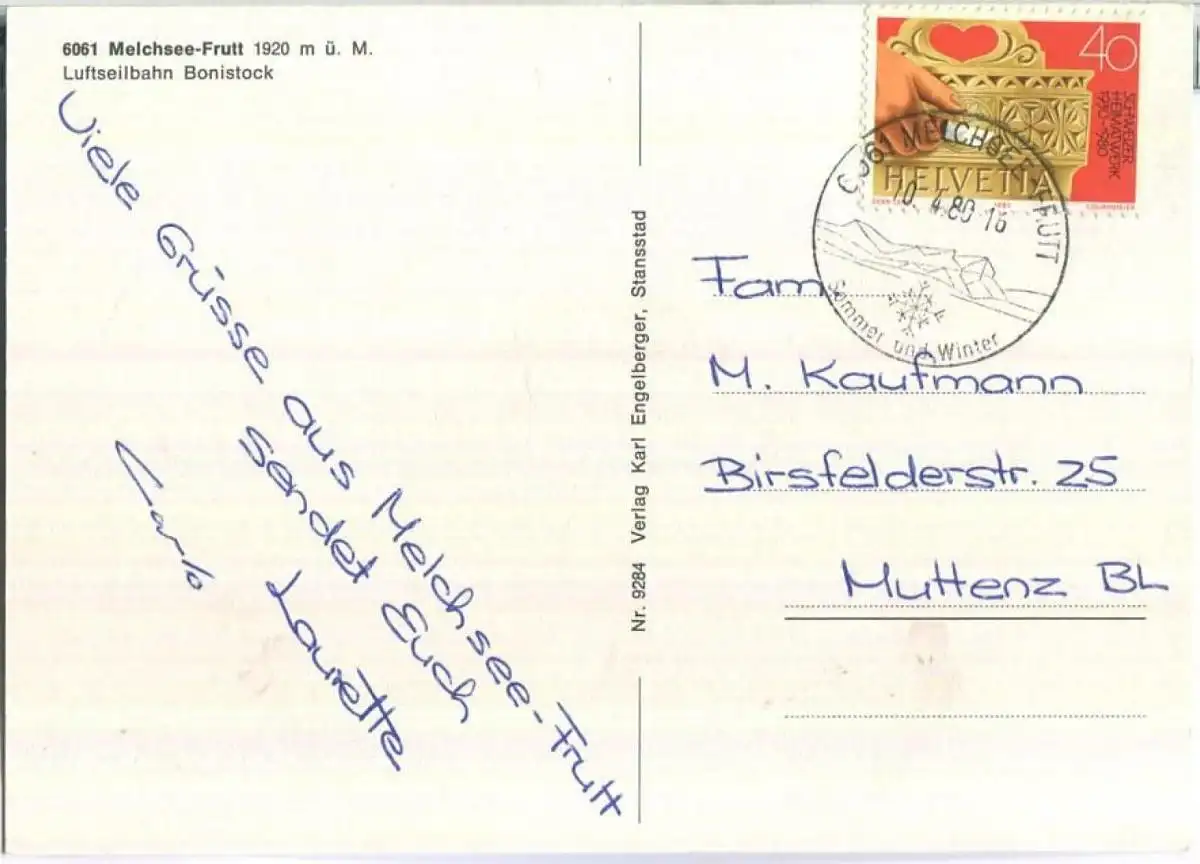 6061 Melchsee-Frutt 1920 m ü. M.
Luftseilbahn Bonistock
Viele Grüsse aus Melchsee-Frutt
sendet Euch
Laurette
Carlo
Nr. 9284 Verlag Karl Engelberger, Stansstad
40
SCHWEIZER
HEIMATWERK
1930-1980
HELVETIA
6061 MELCHSEE-FRUTT
10. 4.80-16
Sommer und Winter
Fam.
M. Kaufmann
Birsfelderstr. 25
Muttenz BL